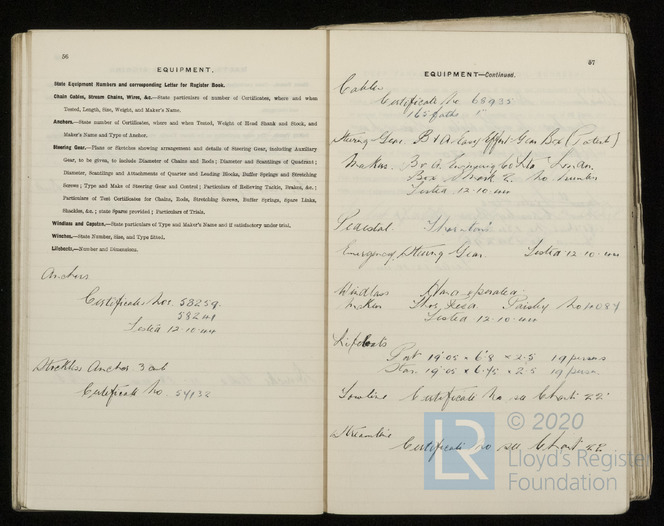 56
EQUIPMENT.
State Equipment Numbers and corresponding Letter for Register Book.
Chain Cables, Stream Chains, Wires, &c.—State particulars of number of Certificates, where and when
Tested, Length, Size, Weight, and Maker's Name.
Anchors.—State number of Certificates, where and when Tested, Weight of Head Shank and Stock, and
Maker's Name and Type of Anchor.
Steering Gear.—Plans or Sketches showing arrangement and details of Steering Gear, including Auxiliary
Gear, to be given, to include Diameter of Chains and Rods; Diameter and Scantlings of Quadrant;
Diameter, Scantlings and Attachments of Quarter and Leading Blocks, Buffer Springs and Stretching
Screws; Type and Make of Steering Gear and Control; Particulars of Relieving Tackle, Brakes, &c.;
Particulars of Test Certificates for Chains, Rods, Stretching Screws, Buffer Springs, Spare Links,
Shackles, &c.; state Spares provided; Particulars of Trials.
Windlass and Capstan.—State particulars of Type and Maker's Name and if satisfactory under trial.
Winches.—State Number, Size, and Type fitted.
Lifeboats.—Number and Dimensions.
Anchors
Certificates Nos. 58259
Tested 12.10.44
Stockless Anchor 3 cwt
Certificate No. 54132
57
EQUIPMENT—Continued.
Cables
Certificate No 68935
165 faths
Steering Gear. B & A Easy Effort Gear Box (Patent)
Makers. B & A Engineering Co Ltd London
Box No. number
Tested 12.10.44
Pedestal Thornton's
Emergency Steering Gear. Tested 12.10.44
Windlass Hand operated
Makers Thos Reid Paisley No
Tested 12.10.44
Lifeboats
Port 19.05 x 6.8 x 2.5 19 persons
Star. 19.05 x 6.75 x 2.5 19 person
Towline Certificate No see Chart 22
Streamline Certificate No see Chart 22
© 2020
LR
Lloyd's Register
Foundation